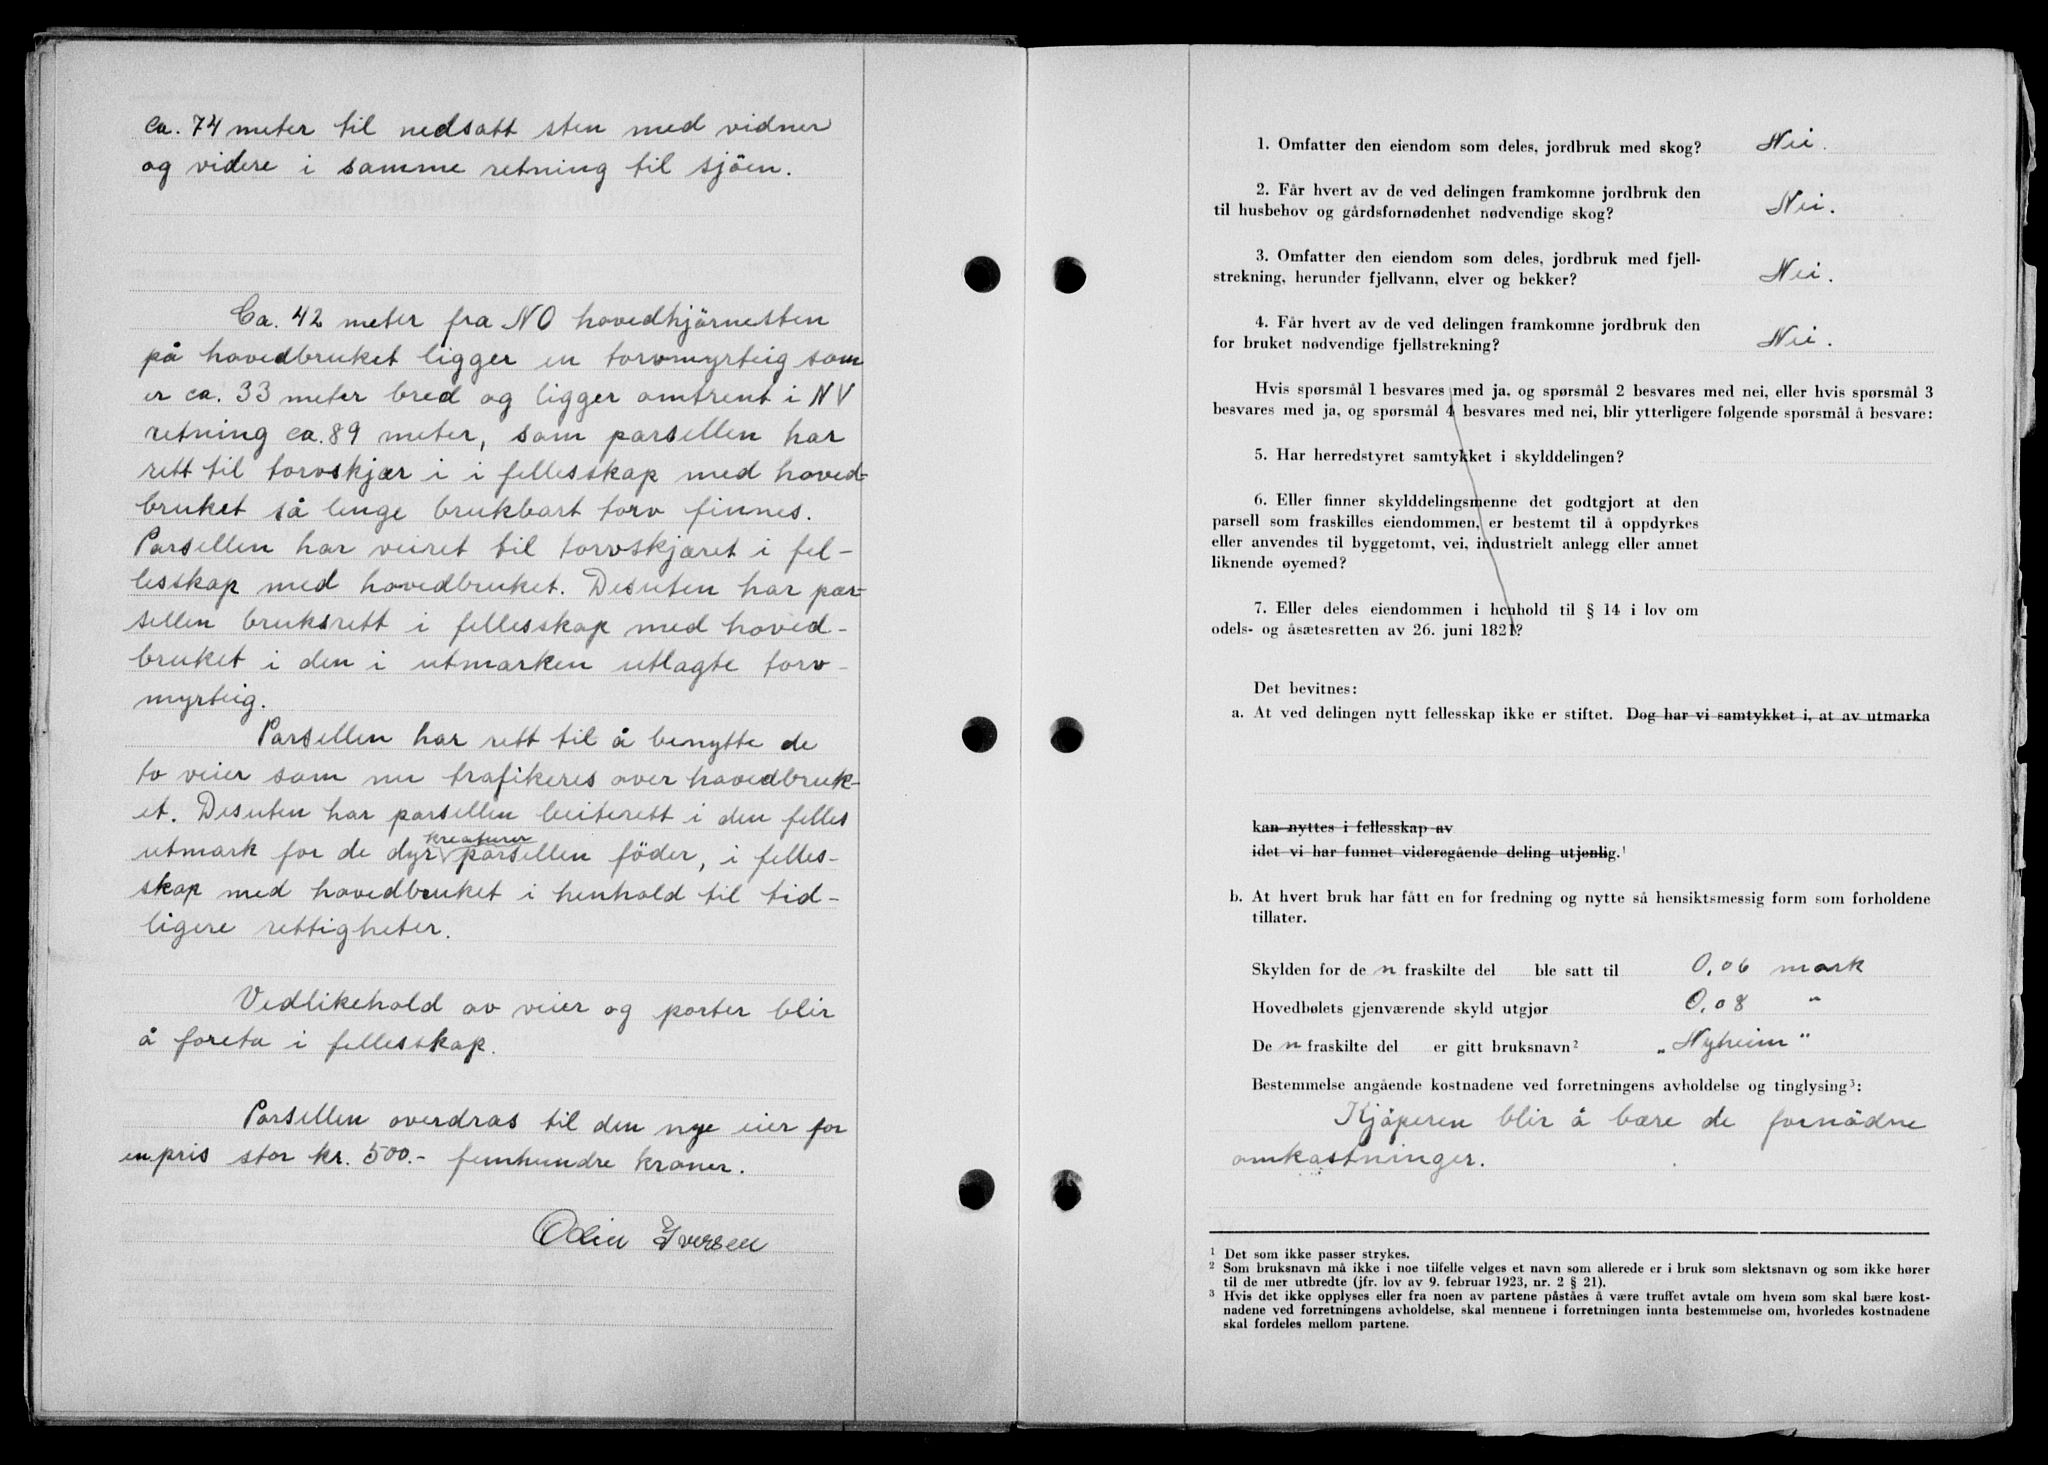 ca. 74 meter til nedsatt sten med vidner
og videre i samme retning til sjöen.
Ca. 42 meter fra NO hovedhjörnesten
på hovedbruket ligger en torvmyrteig som
er ca. 33 meter bred og ligger omtrent i NV
retning ca. 89 meter, som parsellen har
rett til torvskjær i i fellesskap med hoved-
bruket så lenge brukbart torv finnes.
Parsellen har veiret til torvskjæret i fel-
lesskap med hovedbruket. Desuten har par-
sellen bruksrett i fellesskap med hoved-
bruket i den i utmarken utlagte torv-
myrteig.
Parsellen har rett til å benytte de
to veier som nu trafikeres over hovedbruk-
et. Desuten har parsellen beiterett i den felles
kreaturer
utmark for de dyr parsellen föder, i felles-
skap med hovedbruket i henhold til tid-
ligere rettigheter.
Vedlikehold av veier og porter blir
å foreta i fellesskap.
Parsellen overdras til den nye eier for
en pris stor kr. 500.- femhundre kroner.
Odin Iversen
1. Omfatter den eiendom som deles, jordbruk med skog? Nei.
2. Får hvert av de ved delingen framkomne jordbruk den
til husbehov og gårdsfornødenhet nødvendige skog? Nei.
3. Omfatter den eiendom som deles, jordbruk med fjell-
strekning, herunder fjellvann, elver og bekker? Nei.
4. Får hvert av de ved delingen framkomne jordbruk den
for bruket nødvendige fjellstrekning? Nei.
Hvis spørsmål 1 besvares med ja, og spørsmål 2 besvares med nei, eller hvis spørsmål 3
besvares med ja, og spørsmål 4 besvares med nei, blir ytterligere følgende spørsmål å besvare:
5. Har herredstyret samtykket i skylddelingen?
6. Eller finner skylddelingsmenne det godtgjort at den
parsell som fraskilles eiendommen, er bestemt til å oppdyrkes
eller anvendes til byggetomt, vei, industrielt anlegg eller annet
liknende øyemed?
7. Eller deles eiendommen i henhold til § 14 i lov om
odels- og åsætesretten av 26. juni 1821?
Det bevitnes:
a. At ved delingen nytt fellesskap ikke er stiftet. Dog har vi samtykket i, at av utmarka
kan nyttes i fellesskap av
idet vi har funnet videregående deling utjenlig.¹
b. At hvert bruk har fått en for fredning og nytte så hensiktsmessig form som forholdene
tillater.
Skylden for de n fraskilte del ble satt til 0,06 mark
Hovedbølets gjenværende skyld utgjør 0,08 "
De n fraskilte del er gitt bruksnavn² „Nyheim"
Bestemmelse angående kostnadene ved forretningens avholdelse og tinglysing³:
Kjöperen blir å bære de fornödne
omkostninger.
¹ Det som ikke passer strykes.
² Som bruksnavn må ikke i noe tilfelle velges et navn som allerede er i bruk som slektsnavn og som ikke hører
til de mer utbredte (jfr. lov av 9. februar 1923, nr. 2 § 21).
³ Hvis det ikke opplyses eller fra noen av partene påståes å være truffet avtale om hvem som skal bære kost-
nadene ved forretningens avholdelse, skal mennene i forretningen innta bestemmelse om, hvorledes kostnadene
skal fordeles mellom partene.